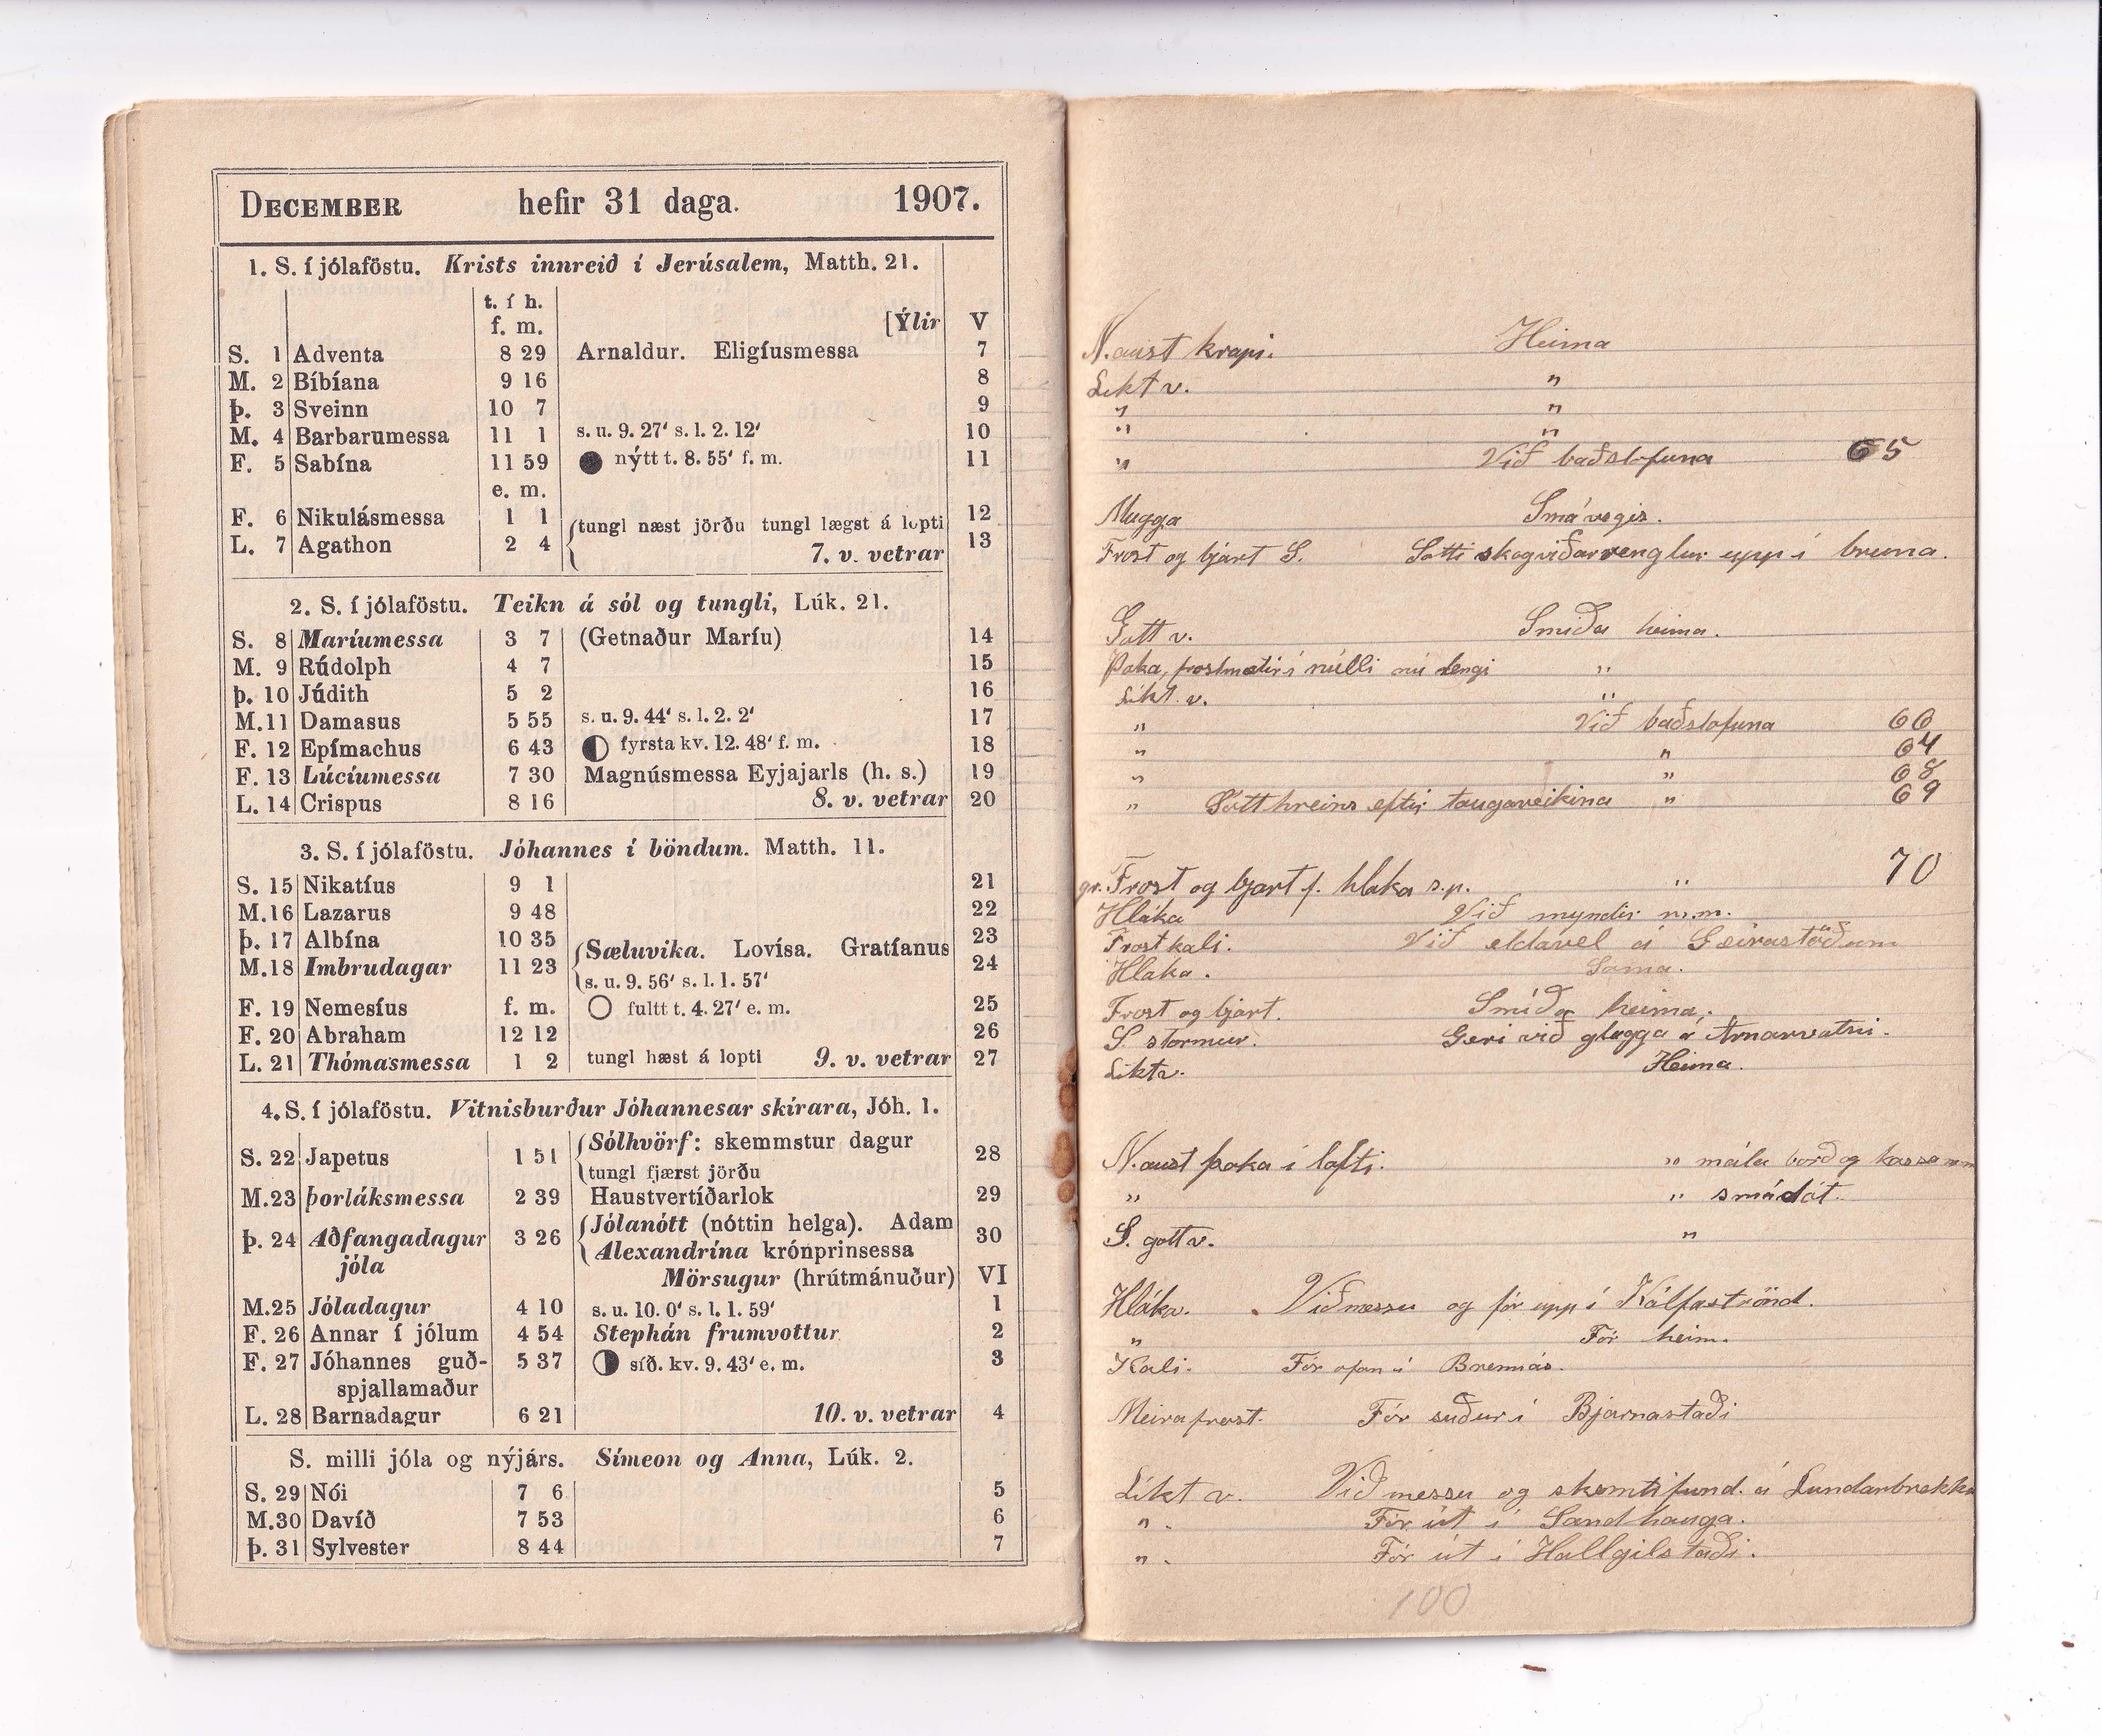 DECEMBER hefir 31 daga. 1907.
1. S. í jólaföstu. Krists innreið í Jerúsalem, Matth. 21.
t. í h.
f. m. [Ýlir V
S. 1 Adventa 8 29 Arnaldur. Eligíusmessa 7
M. 2 Bíbíana 9 16 8
Þ. 3 Sveinn 10 7 9
M. 4 Barbarumessa 11 1 s. u. 9. 27' s. l. 2. 12' 10
F. 5 Sabína 11 59 nýtt t. 8. 55' f. m. 11
e. m.
F. 6 Nikulásmessa 1 1 tungl næst jörðu tungl lægst á lopti 12
L. 7 Agathon 2 4 7. v. vetrar 13
2. S. í jólaföstu. Teikn á sól og tungli, Lúk. 21.
S. 8 Maríumessa 3 7 (Getnaður Maríu) 14
M. 9 Rúdolph 4 7 15
Þ. 10 Júdith 5 2 16
M. 11 Damasus 5 55 s. u. 9. 44' s. l. 2. 2' 17
F. 12 Epímachus 6 43 fyrsta kv. 12. 48' f. m. 18
F. 13 Lúcíumessa 7 30 Magnúsmessa Eyjajarls (h. s.) 19
L. 14 Crispus 8 16 8. v. vetrar 20
3. S. í jólaföstu. Jóhannes í böndum. Matth. 11.
S. 15 Nikatíus 9 1 21
M. 16 Lazarus 9 48 22
Þ. 17 Albína 10 35 Sæluvika. Lovísa. Gratíanus 23
M. 18 Imbrudagar 11 23 s. u. 9. 56' s. l. 1. 57' 24
F. 19 Nemesíus f. m. fullt t. 4. 27' e. m. 25
F. 20 Abraham 12 12 26
L. 21 Thómasmessa 1 2 tungl hæst á lopti 9. v. vetrar 27
4. S. í jólaföstu. Vitnisburður Jóhannesar skírara, Jóh. 1.
S. 22 Japetus 1 51 Sólhvörf: skemmstur dagur 28
tungl fjærst jörðu
M. 23 Þorláksmessa 2 39 Haustvertíðarlok 29
Þ. 24 Aðfangadagur 3 26 Jólanótt (nóttin helga). Adam 30
jóla Alexandrína krónprinsessa
Mörsugur (hrútmánuður) VI
M. 25 Jóladagur 4 10 s. u. 10. 0' s. l. 1. 59' 1
F. 26 Annar í jólum 4 54 Stephán frumvottur 2
F. 27 Jóhannes guð- 5 37 síð. kv. 9. 43' e. m. 3
spjallamaður
L. 28 Barnadagur 6 21 10. v. vetrar 4
S. milli jóla og nýjárs. Símeon og Anna, Lúk. 2.
S. 29 Nói 7 6 5
M. 30 Davíð 7 53 6
Þ. 31 Sylvester 8 44 7
N. aust krapi. Heima
Líkt v. "
" "
" "
" Við baðstofuna 65
Mugga Smávegis.
Frost og bjart S. Sótti skógviðarrenglur upp í bruna.
Gott v. Smíða heima.
Þoka, frostmælir í núlli nú lengi "
Líkt v. "
" Við baðstofuna 60
" " 64
" " 68
" Sótthreins eftir taugaveikina " 69
gr. Frost og bjart f. hláka s.p. " 70
Hláka Við myndir m.m.
Frostkali. Við eldavél á Geirastöðum
Hláka. Sama.
Frost og bjart. Smíða heima.
S. stormur. Geri við glugga á Arnarvatni.
Líkt v. Heima.
N. aust þoka í lofti. " mála borð og kassa m m
" " smádót.
S. gott v. "
Hláka. Við messu og fór upp í Kálfaströnd.
" Fór heim.
Kali. Fór ofan í Brennás.
Meira frost. Fór suður í Bjarnastaði
Líkt v. Við messu og skemtifund. á Lundarbrekku
" . Fór út í Sandhauga.
" . Fór út í Hallgilstaði.
100